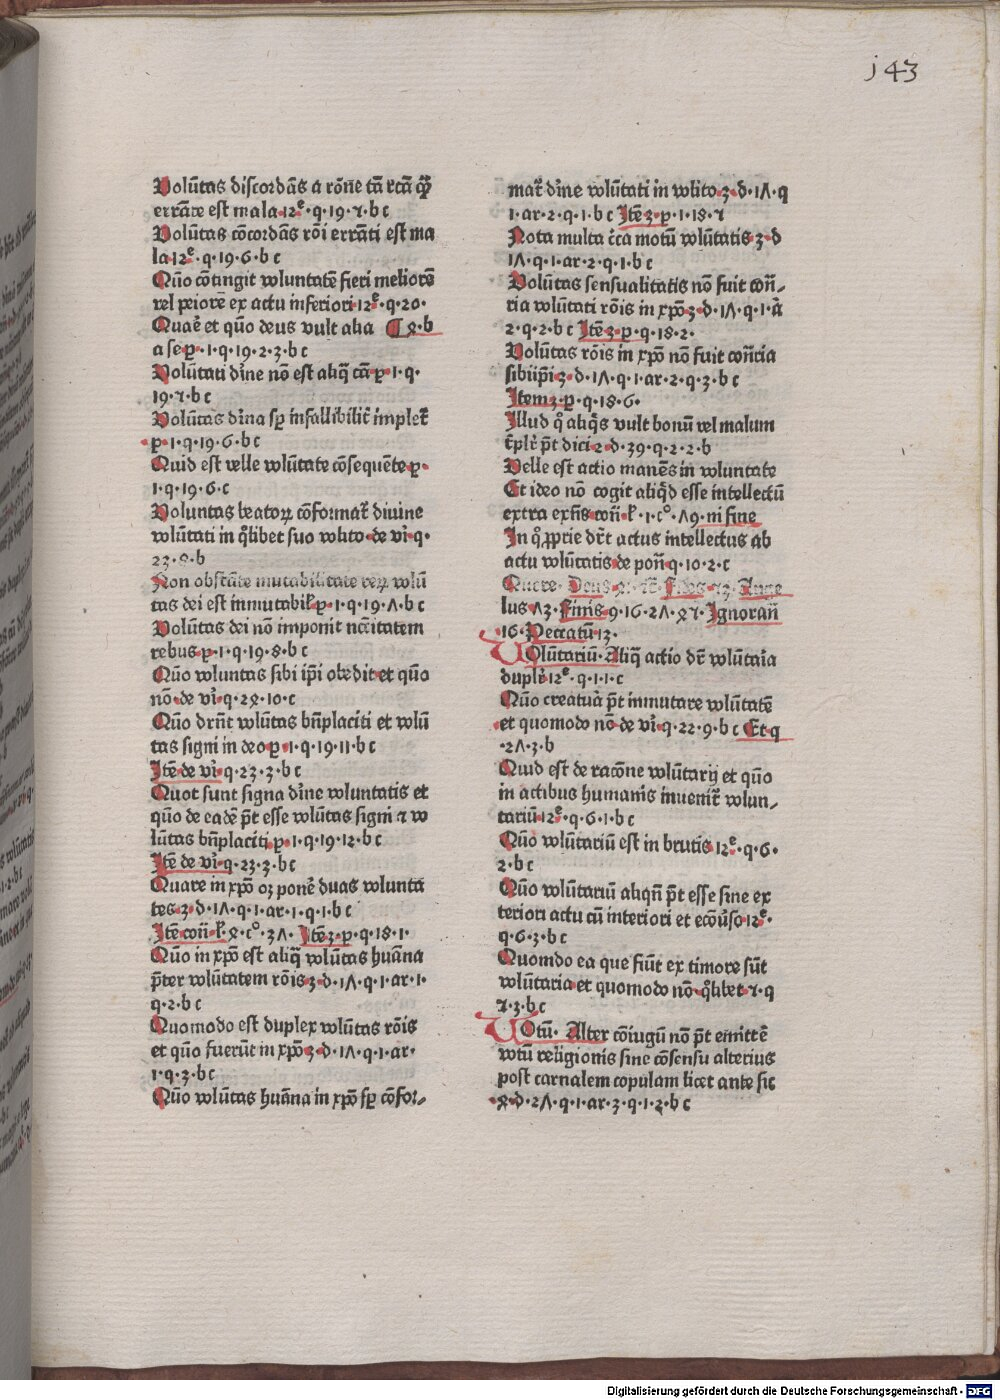 143
Volūtas discordās a rōne tā rcā qr̄
errāte est mala 12ᵉ·q·19·7·b c
Volūtas cōcordās rōi errāti est ma
la 12ᵉ·q·19·6·b c
Quō cōtingit voluntatē fieri meliorē
vel peiorē ex actu inferiori 12ᵉ·q·20·
Quaē et quō deus vult alia ¶ 8·b
a se p·1·q·19·2·3·b c
Volūtati dīne nō est aliq̄ cā p·1·q·
19·7·b c
Volūtas dīna sꝑ infallibilit̄ implet̄
p·1·q·19·6·b c
Quid est velle volūtate cōsequēte p·
1·q·19·6·c
Voluntas beatoꝝ cōformat̄ divine
volūtati in q̄libet suo volito·de vi·q·
23·8·b
Non obstāte mutabilitate reꝝ volū
tas dei est inmutabil̄ p·1·q·19·Λ·b c
Volūtas dei nō imponit ncc̄itatem
rebus·p·1·q·19·8·b c
Quō voluntas sibi ip̄i obedit et quō
nō·de vi·q·28·10·c
Quō dr̄nt volūtas bn̄placiti et volū
tas signi in deo p·1·q·19·11·b c
Itē de vi·q·23·3·b c
Quot sunt signa dīne voluntatis et
quō de eadē p̄t esse volūtas signi ⁊ vo
lūtas bn̄placiti·p·1·q·19·12·b c
Itē de vi·q·23·3·b c
Quare in xp̄o oꝫ ponē duas volunta
tes·3·d·1Λ·q·1·ar·1·q·1·b c
Itē con̄·l̄·8·c°·3Λ· Itē 3·p·q·18·1·
Quō in xp̄o est aliq̄ volūtas huāna
p̄ter volūtatem rōis·3·d·1Λ·q·1·ar·1·
q·2·b c
Quomodo est duplex volūtas rōis
et quō fuerūt in xp̄o·3·d·1Λ·q·1·ar·
1·q·3·b c
Quō volūtas huāna in xp̄o sꝑ cōfor⸗
mat̄ dīne volūtati in volito 3·d·1Λ·q
1·ar·2·q·1·b c Itē 3·p·1·18·7
Nota multa c̄ca motū volūtatis·3·d
1Λ·q·1·ar·2·q·1·b c
Volūtas sensualitatis nō fuit con̄⸗
ria volūtati rōis in xp̄o·3·d·1Λ·q·1·ā
2·q·2·b c Itē 3·p·q·18·2·
Volūtas rōis in xp̄o nō fuit con̄ria
sibiip̄i·3·d·1Λ·q·1·ar·2·q·3·b c
Item 3·p·q·18·6·
Illud q̄ aliq̄s vult bonū vel malum
t̄plr̄ p̄t dici 2·d·39·q·2·2·b
Velle est actio manēs in voluntate
Et ideo nō cogit aliq̄d esse intellectū
extra exn̄s con̄·l̄·1·c°·Λ9·in fine
In q̄ ꝓprie dr̄t actus intellectus ab
actu volūtatis de pon̄·q·10·2·c
Quere· Deus Fides 73· Ange
lus Λ3· Finis·9·16·2Λ·87· Ignoran̄
16· Peccatū 13·
VOlūtariū· Aliq̄ actio dr̄ volūtaīa
duplr̄ 12ᵉ·q·1·1·c
Quō creatuīa p̄t inmutare volūtatē
et quomodo nō·de vi·q·22·9·b c Et q
·2Λ·3·b
Quid est de racōne volūtarij et quō
in actibus humanis invenit̄ volun⸗
tariū 12ᵉ·q·6·1·b c
Quō volūtariū est in brutis 12ᵉ·q·6·
2·b c
Quō volūtariū aliqn̄ p̄t esse sine ex
teriori actu cū interiori et ecōv̄so 12ᵉ·
q·6·3·b c
Quomdo ea que fiūt ex timore sūt
volūtaria et quomodo nō q̄libet·7·q
7·3·b c
VOtū· Alter cōiugū nō p̄t emittē
votū religionis sine cōsensu alterius
post carnalem copulam licet ante sic
·8·d·2Λ·q·1·ar·3·q·1·2·b c
Digitalisierung gefördert durch die Deutsche Forschungsgemeinschaft · DFG